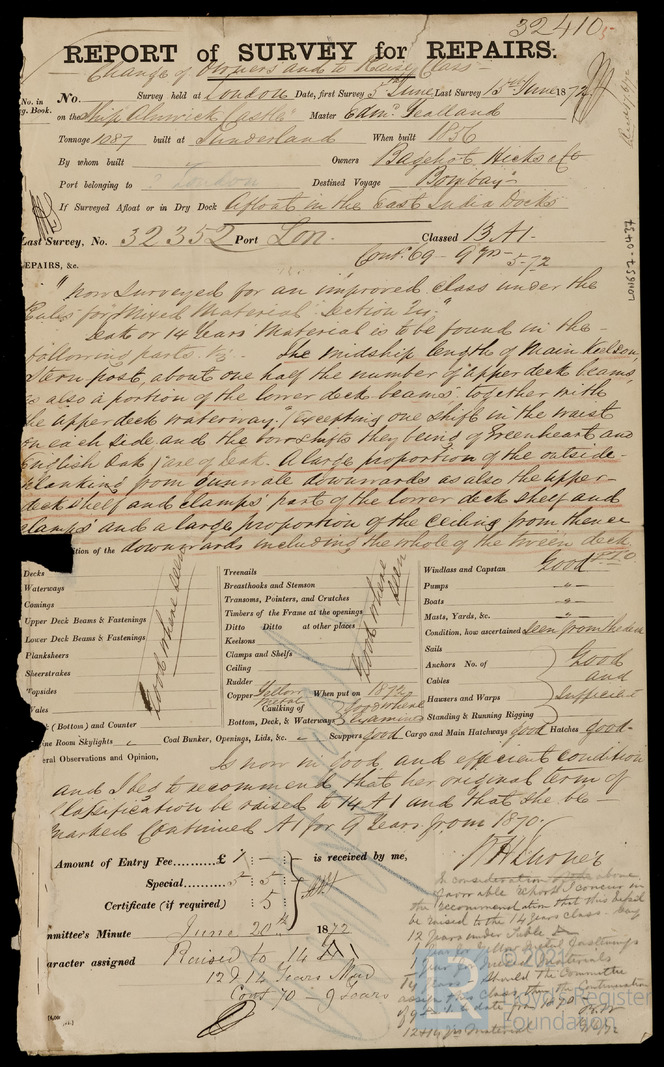 32410
REPORT of SURVEY for REPAIRS.
Change of Owners and to Raise Class
No. in
g. Book.
No. Survey held at London Date, first Survey 5th June Last Survey 15th June 1872
on the Ship Alnwick Castle Master Edm. Tealland
Tonnage 1087 built at Sunderland When built 1856
By whom built Owners Bagehot Hicks & Co
Port belonging to London Destined Voyage Bombay
If Surveyed Afloat or in Dry Dock Afloat in the East India Docks
Last Survey, No. 32352 Port Lon. Classed 13 A1.
Cont. 69 - 9 Yrs - 5-72
REPAIRS, &c.
LON657-0437
"now Surveyed for an improved class under the
Rules for Mixed Material Section 24"
Teak or 14 Years Material is to be found in the
following parts. Viz. The midship length of Main Keelson,
Stern post, about one half the number of upper deck beams,
as also a portion of the lower deck beams together with
the upper deck waterway, (excepting one shift in the waist
on each side and the bow shifts they being of Greenheart and
English Oak) are of Teak. A large proportion of the outside
planking from Gunwale downwards as also the upper
deck shelf and clamps part of the lower deck shelf and
clamps and a large proportion of the ceiling from thence
dition of the downwards including the whole of the tween deck
Decks
Waterways
Comings
Upper Deck Beams & Fastenings
Lower Deck Beams & Fastenings
Planksheers
Sheerstrakes
Topsides
Wales
k (Bottom) and Counter
Good where seen
Treenails
Breasthooks and Stemson
Transoms, Pointers, and Crutches
Timbers of the Frame at the openings
Ditto Ditto at other places
Keelsons
Clamps and Shelfs
Ceiling
Rudder
Good where seen
Copper Yellow Metal When put on 187
Caulking of
Bottom, Deck, & Waterways Good where examined
Windlass and Capstan Good
Pumps "
Boats "
Masts, Yards, &c. "
Condition, how ascertained Seen from the deck
Sails
Anchors No. of
Cables
Hawsers and Warps
Standing & Running Rigging
Good and sufficient
ine Room Skylights Coal Bunker, Openings, Lids, &c. Scuppers good Cargo and Main Hatchways good Hatches good
eral Observations and Opinion,
Is now in good and efficient condition
and I beg to recommend that her original term of
Classification be raised to 14 A1 and that she be
marked Continued A1 for 9 Years from 1870.
Amount of Entry Fee......... £ 1 : - : is received by me,
Special......... 5 : 5 :
Certificate (if required) : 5 :
mmittee's Minute June 20th 1872
aracter assigned Raised to 14 A1
12 & 14 Years Mat
Cont 70 - 9 Years
In consideration of the above
favorable report I concur in
the recommendation that this vessel
be raised to the 14 years class - Say
12 Years under Table
Year for Yellow Metal Fastenings
Year for Mixed Materials
14 Years Should the Committee
assign this Class, then the Continuation
of 9 Years to date from 1870
12 & 14 Yrs Material
© 202
Lloyd's Register
Foundation